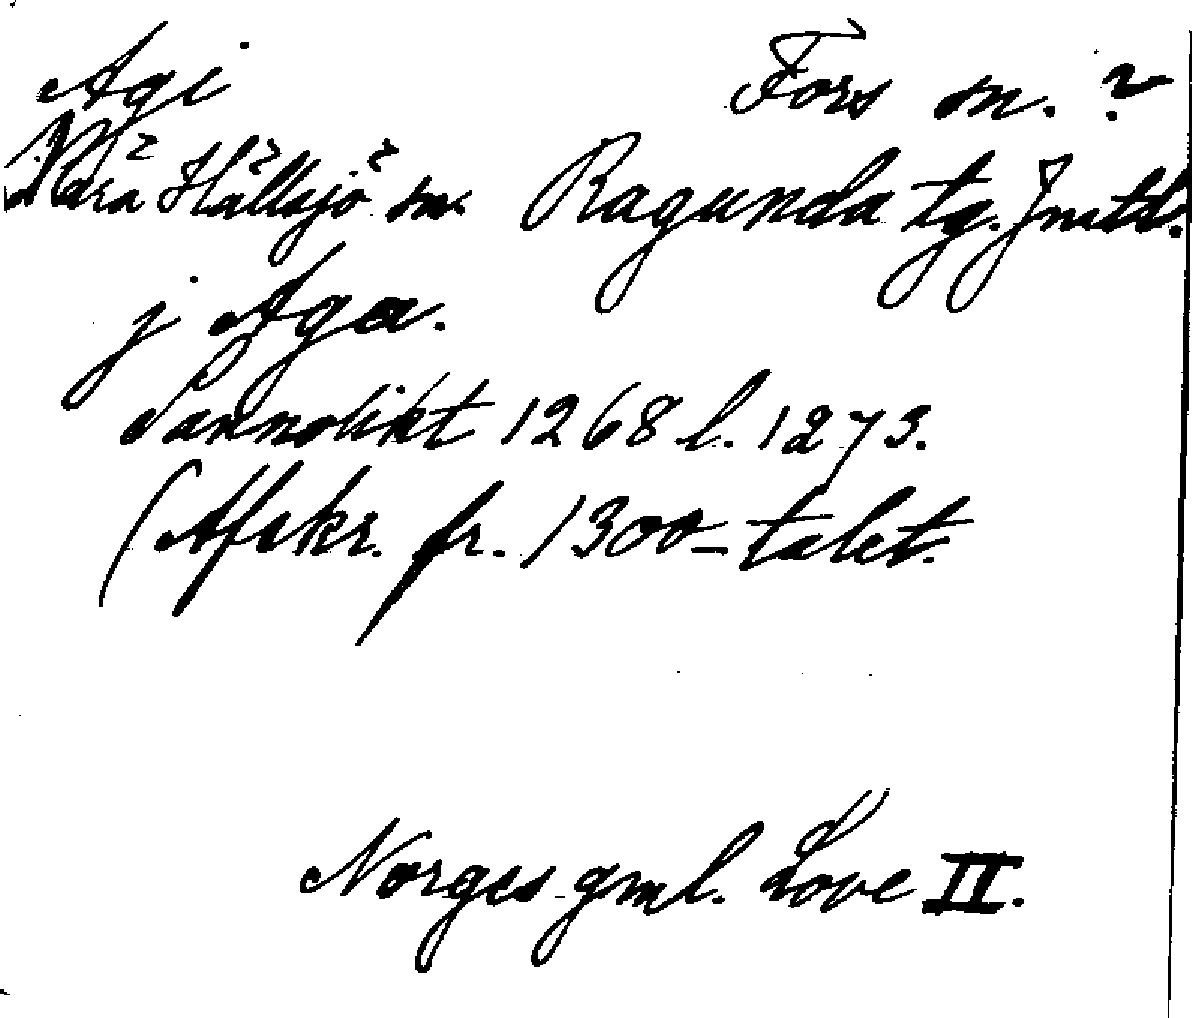 Agi Fors sn. ?
Nära Hällsjö sn. Ragunda tg. Jmtl.
j Aga.
Sannolikt 1268 l. 1273.
(Afskr. fr. 1300-talet.
Norges gml. Love II.